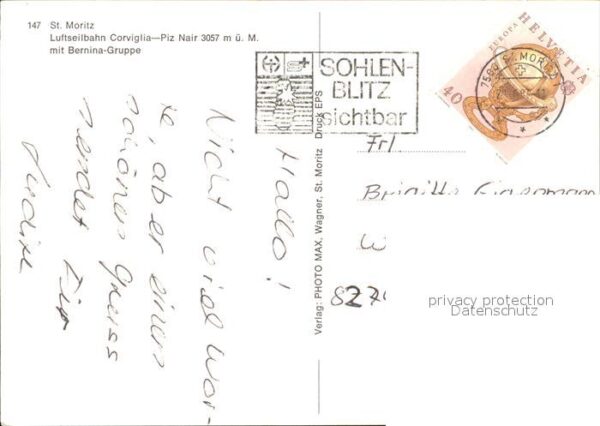 147 St. Moritz
Luftseilbahn Corviglia—Piz Nair 3057 m ü. M.
mit Bernina-Gruppe
Hallo!
Nicht viel Wor-
te, aber einen
schönen Gruss
sendet Dir
SOHLEN-
BLITZ
sichtbar
EUROPA
HELVETIA
40
7500 ST. MORITZ
Frl
Brigitte
W
827
privacy protection
Datenschutz
Verlag: PHOTO MAX. Wagner, St. Moritz Druck EPS